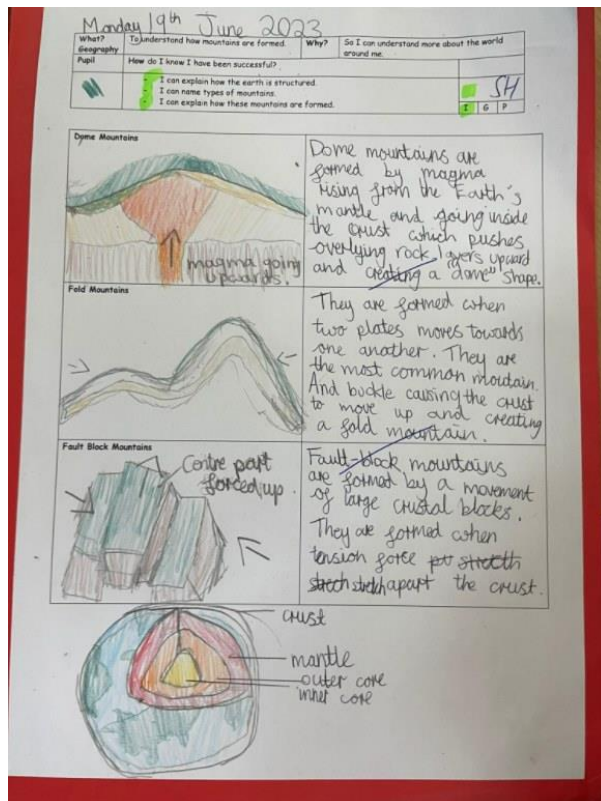 Monday 19th June 2023
What?
Geography
To understand how mountains are formed.
Why?
So I can understand more about the world
around me.
Pupil
How do I know I have been successful?
- I can explain how the earth is structured.
- I can name types of mountains.
- I can explain how these mountains are formed.
SH
I G P
Dome Mountains
magma going
upwards.
Dome mountains are
formed by magma
rising from the Earth's
mantle and going inside
the crust which pushes
overlying rock layers upward
and creating a "dome" shape.
Fold Mountains
They are formed when
two plates moves towards
one another. They are
the most common moutain.
And buckle causing the crust
to move up and creating
a fold mountain.
Fault Block Mountains
Centre part
forced up.
Fault-block mountains
are formed by a movement
of large crustal blocks.
They are formed when
tension force
apart the crust.
crust
mantle
outer core
inner core